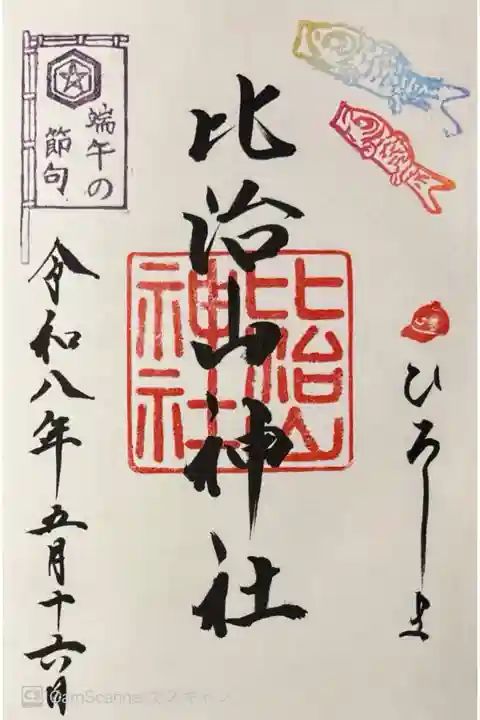 ひろしま
比治山神社
比治山
神社
端午の
節句
令和八年 五月十六日
CS CamScannerでスキャン